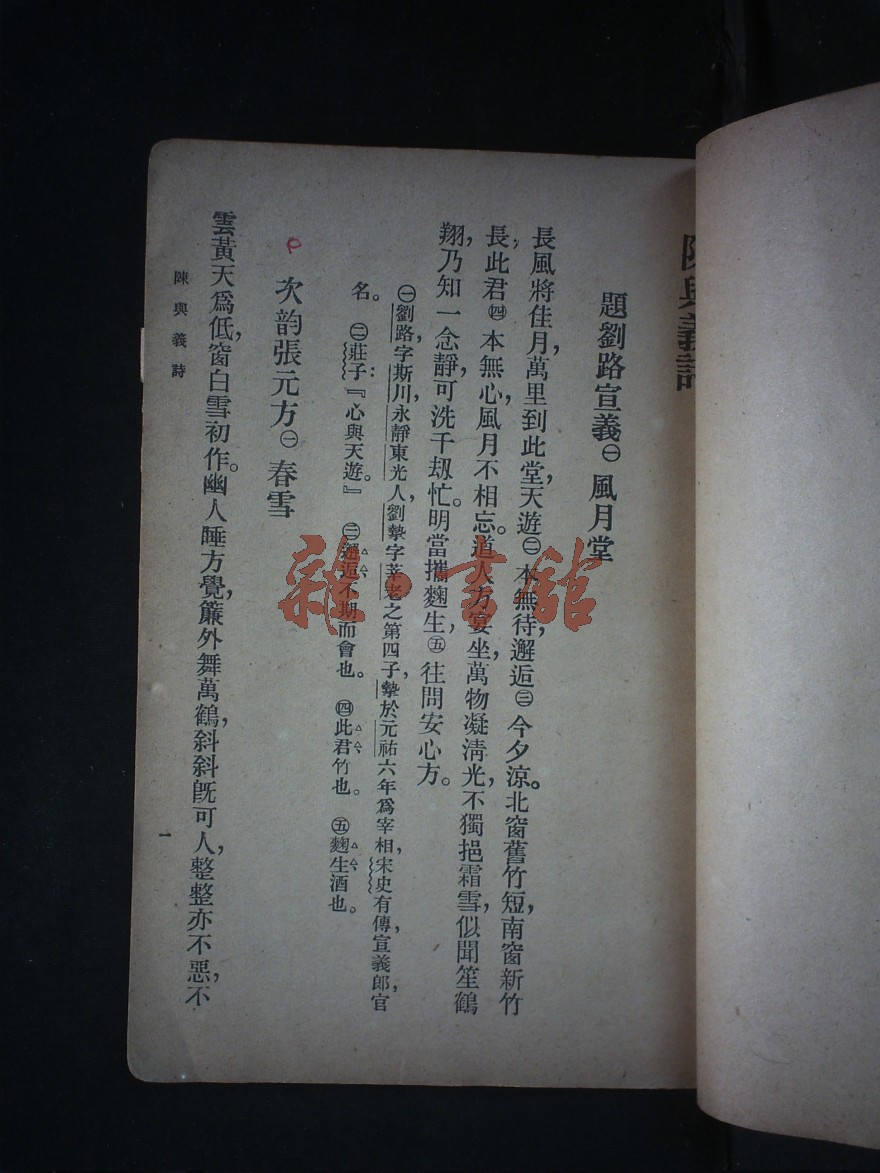 陳與義詩
題劉路宣義㊀風月堂
長風將佳月，萬里到此堂，天遊㊁本無待，邂逅㊂今夕涼。北窗舊竹短，南窗新竹
長，此君㊃本無心，風月不相忘。道人方宴坐，萬物凝淸光，不獨挹霜雪，似聞笙鶴
翔，乃知一念靜，可洗千刼忙。明當攜麴生，㊄往問安心方。
㊀劉路字斯川，永靜東光人，劉摯字莘老之第四子，摯於元祐六年爲宰相，宋史有傳，宣義郎，官
名。㊁莊子：『心與天遊。』㊂邂逅不期而會也。㊃此君竹也。㊄麴生酒也。
次韵張元方㊀春雪
雲黃天爲低，窗白雪初作。幽人睡方覺，簾外舞萬鶴，斜斜旣可人，整整亦不惡，不
陳與義詩
一
雜·書館